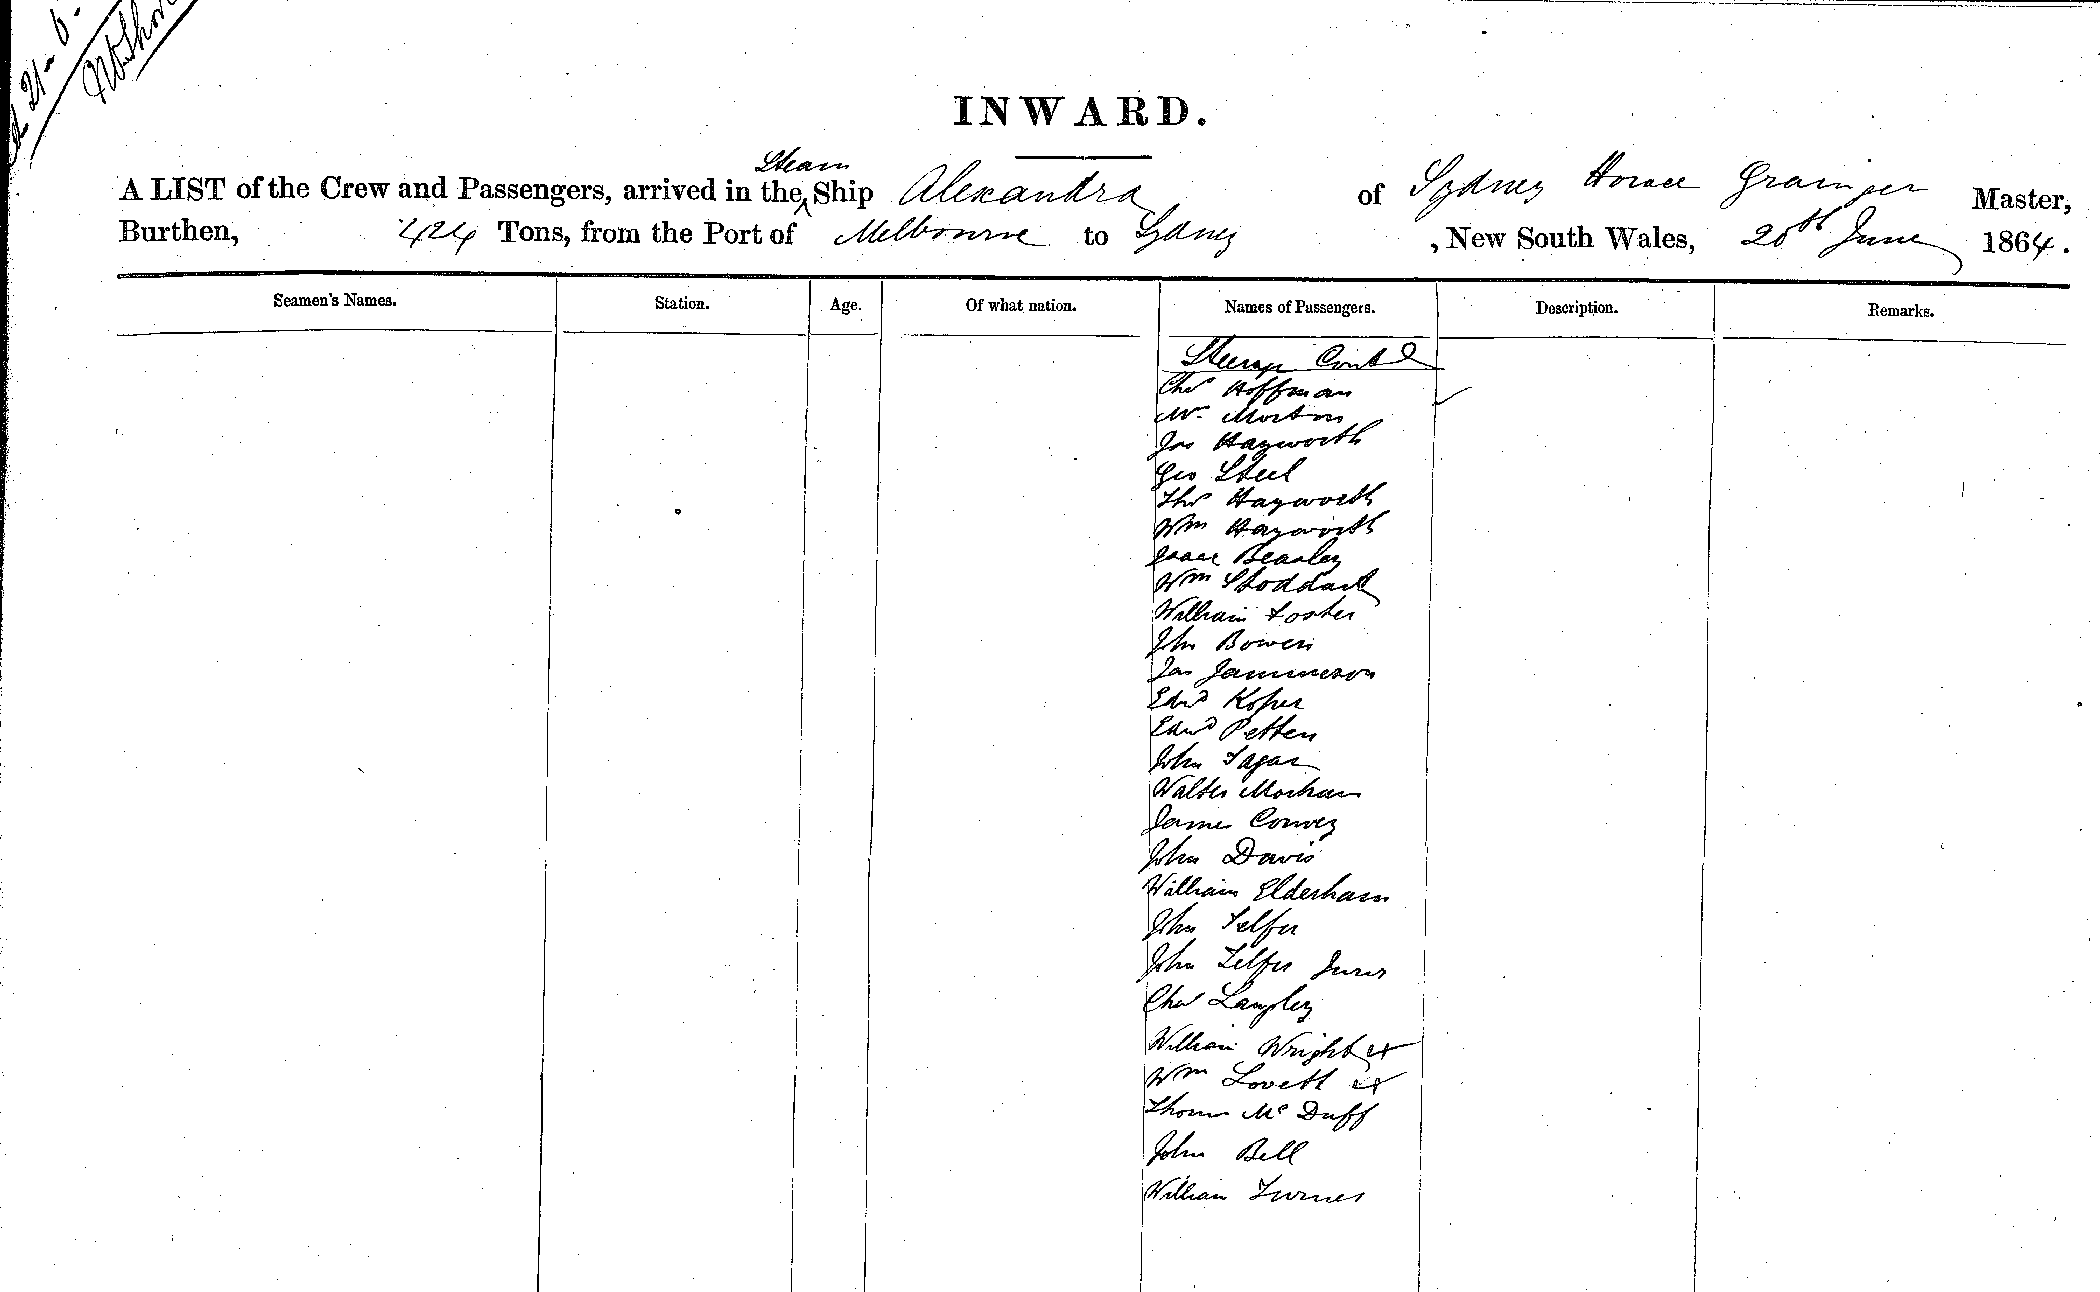 21-6-
INWARD.
Steam
A LIST of the Crew and Passengers, arrived in the Ship Alexandra of Sydney Horace Grainger Master,
Burthen, 424 Tons, from the Port of Melbourne to Sydney , New South Wales, 20th June 1864.
Seamen's Names. Station. Age. Of what nation. Names of Passengers. Description. Remarks.
Steerage Contd
Chas Hoffman
Mr Morton
Jas Hayworth
Geo Steel
Thos Hayworth
Wm Hayworth
Isaac Beasley
Wm Stoddart
William Foster
Jhn Bowen
Jas Jammieson
Edwd Roper
Edwd Petten
John Fagan
Walter Markham
James Convey
John Davis
William Elderham
John Telfer
John Telfer Junr
Chas Langley
William Wright
Wm Lovett
Thomas Mc Duff
John Bell
William Turner